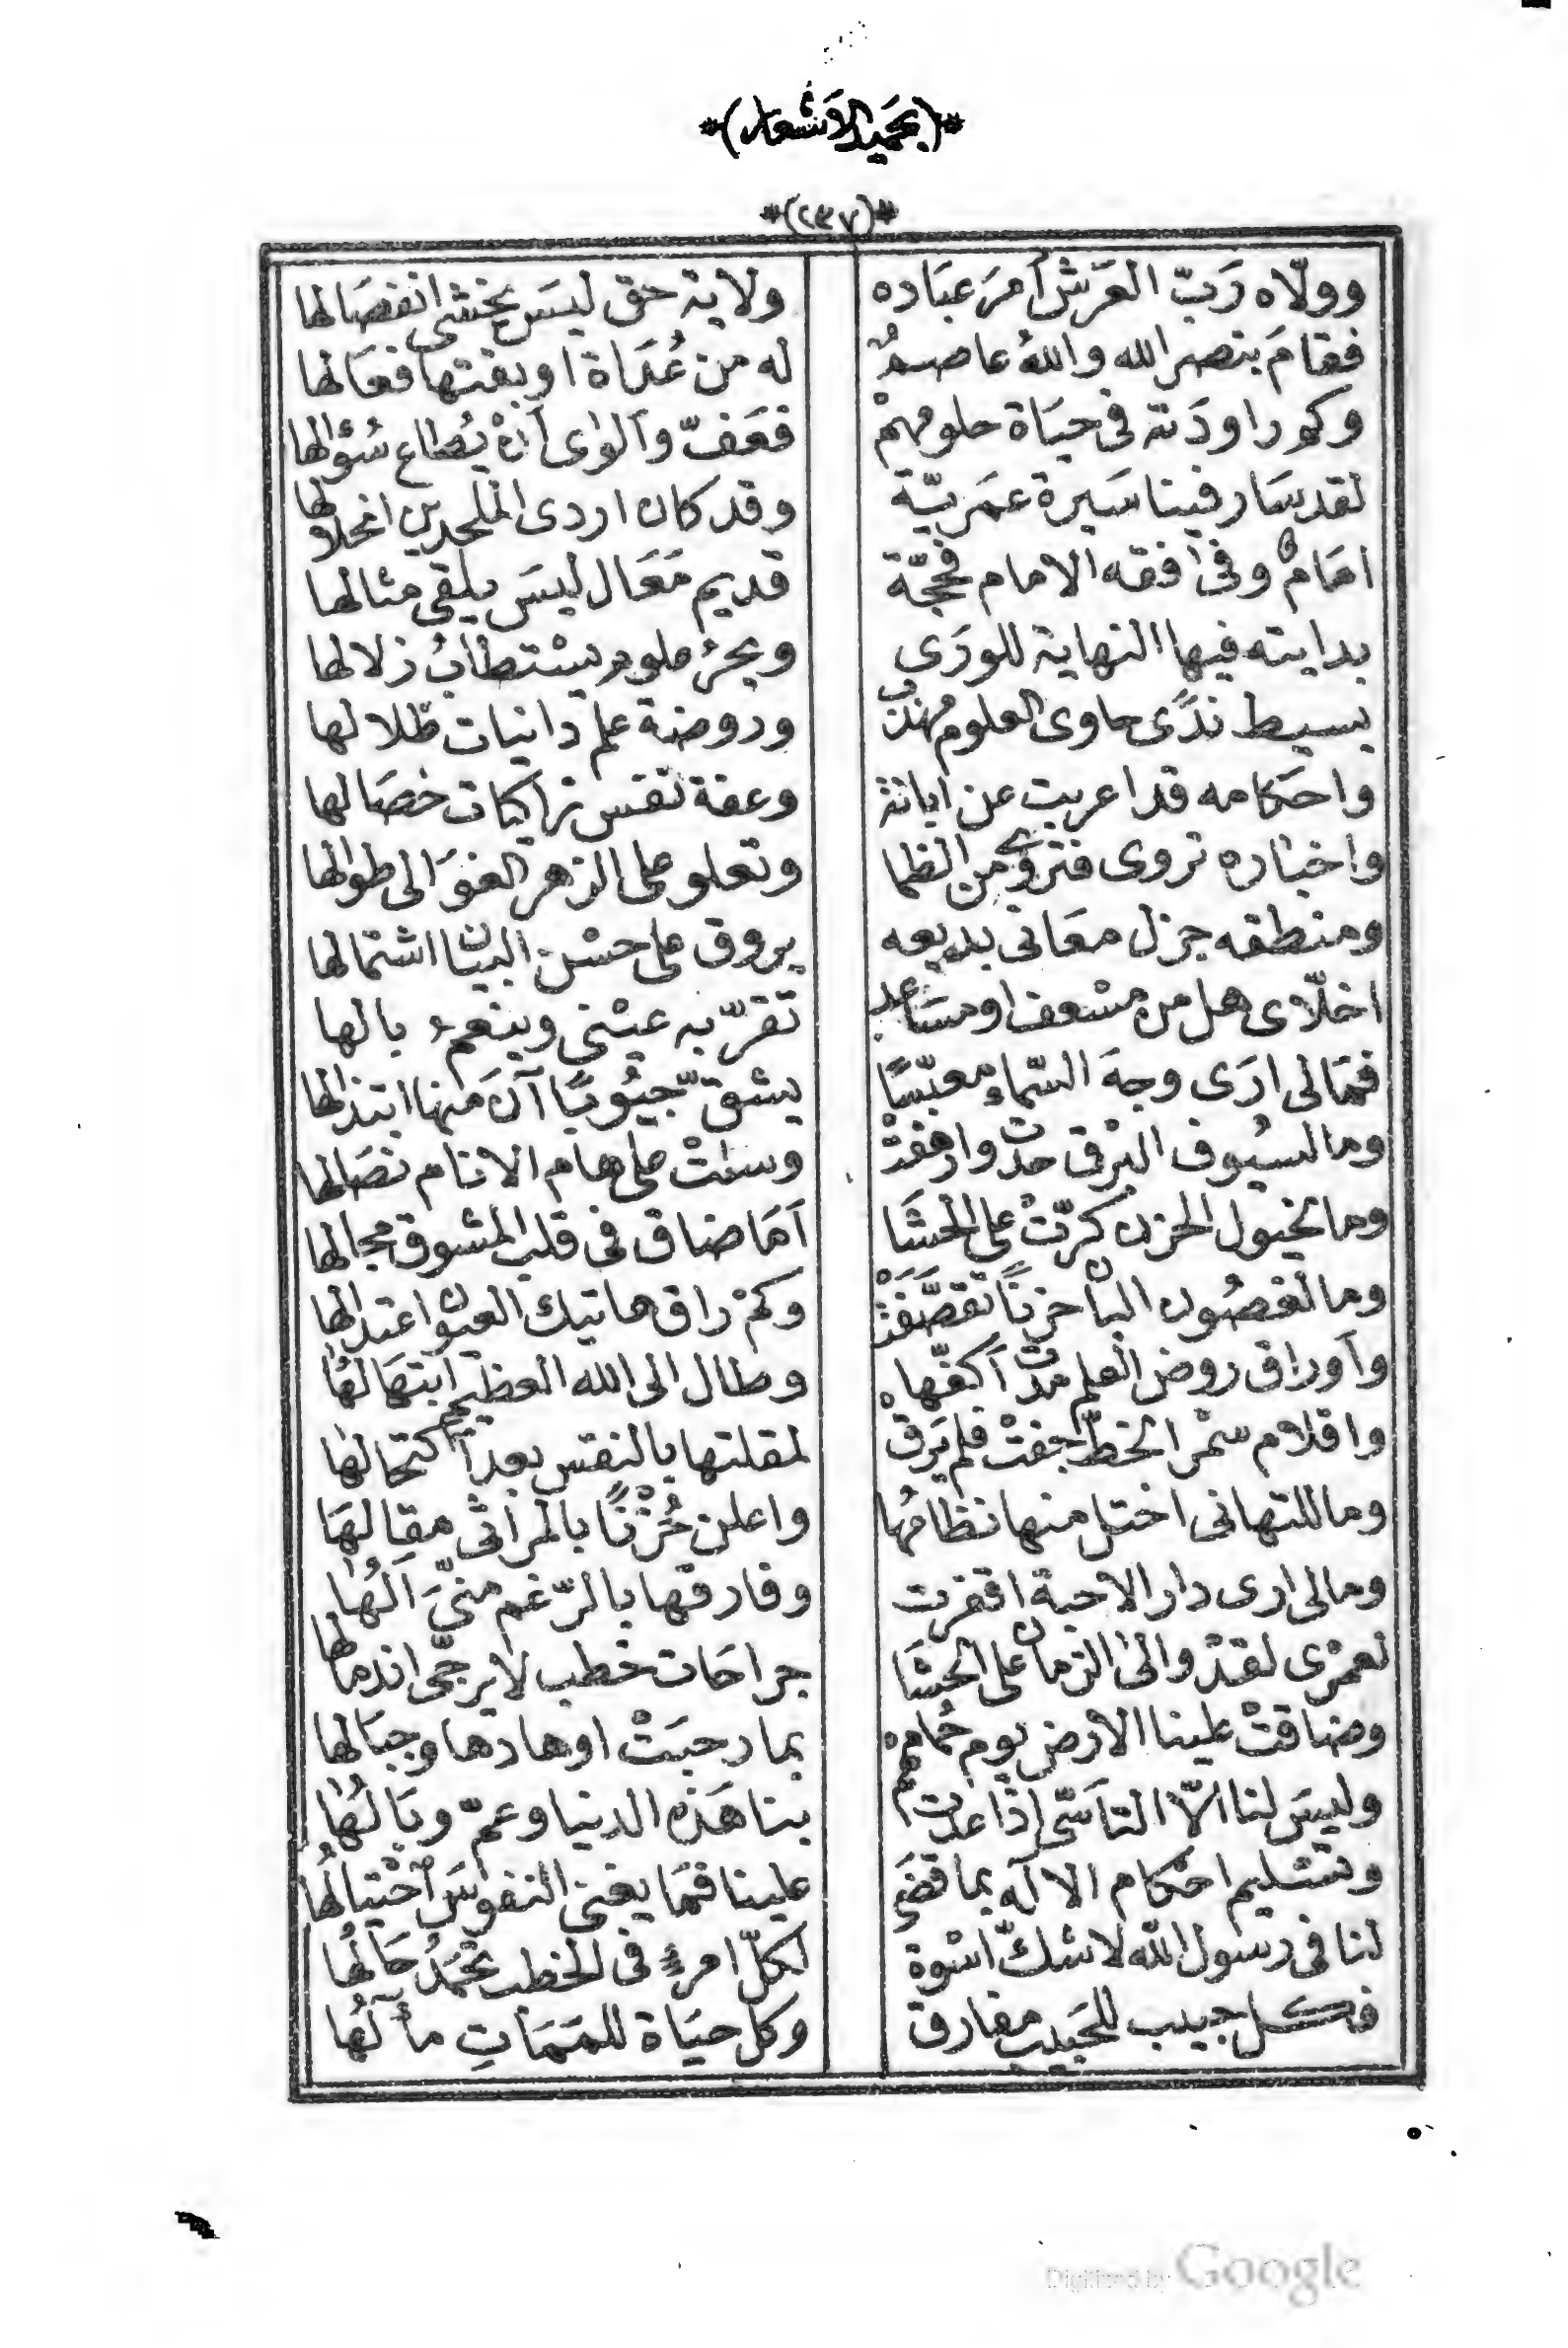 *(بحميد الأشعار)*
*(٢٣٧)*
وولّاه رَبّ العَرْش أمرَ عبَاده ولاية حق ليسَ يخشى انفصَالها
فقامَ بنصر الله واللهُ عاصمٌ له من عُدَاة اوبقتها فعَالها
وكم راودَته فى حيَاة حلومهمْ فعَفّ وآلوى آنْ يُطاع سُؤالها
لقد سَار فينا سَيرة عمَريّة وقد كان اردى الملحدين انخلالها
امَامٌ وفى افقه الامام فحجّة قديم مَعَال ليسَ يلقى مثالها
بدايته فيها النهاية للورَى وبحرُ علوم يسْتطابُ زلالها
بسيط ندًى حاوى العلوم مهذبٌ وروضة علم دانيات ظلالها
واحكامه قد اعربت عن ابانة وعفة نفس زاكيات خصَالها
واخباره تروى فتروى من الظما وتعلو على الزهر الغوَالى طوالها
ومنطقه جزل معَانى بديعه يروق على حسْن البيان اشتمالها
اخلّاى هل من مسْعف او مسَاعد تقرّ به عيْنى وينعمُ بالها
فمَالى ارَى وجهَ السّماء معبّسًا يشقّ جيُوبًا آن مَنها ابتذالها
وما لسيُوف البرْق حدت وارهفتْ وسلتْ على هام الانام نصَالها
وما لخيول الحزن كرّتْ على الحشَا آمَا ضاق فى قلب المشوق مجالها
وما لغصُون البان حزنًا تقصَّفَتْ وكمْ راق هاتيك العيون اعتدالها
وآوراق روض العلم مدت آكفّها وطال الى الله العظيم ابتهَالهُا
واقلام سمْر الخطّ جفتْ فلم يَرقْ لمقلتها بالنقس بعد اكتحالها
وما للتهانى اختل منها نظامُها واعلن حُزْنًا بالمراثى مقالهَا
ومالى ارى دار الاحبة اقفرت وفارقها بالرّغم منىّ آلُها
لعمْرى لقدْ والى الزمان على الحشَا جراحَات خطب لا يرجّى اندمالها
وضاقتْ علينا الارض يوم حُمامه بما رحبَتْ اوهادها وجبَالها
وليسَ لنا الّا التآسّى اذا عدت بنا هَذه الدنيا وعمّ وبَالهُا
وتسْليم احْكام الاله بما قضَى علينا فمَا يغنى النفوسَ احْتيالهُا
لنا فى رسول الله لا شكّ اسْوة لكلّ امرءٍ فى الخطب تحْمَدُ حَالُها
فكل حبيب للحَبيب مفارق وكل حيَاة للمَمَاتِ مآلهُا
Digitized by Google